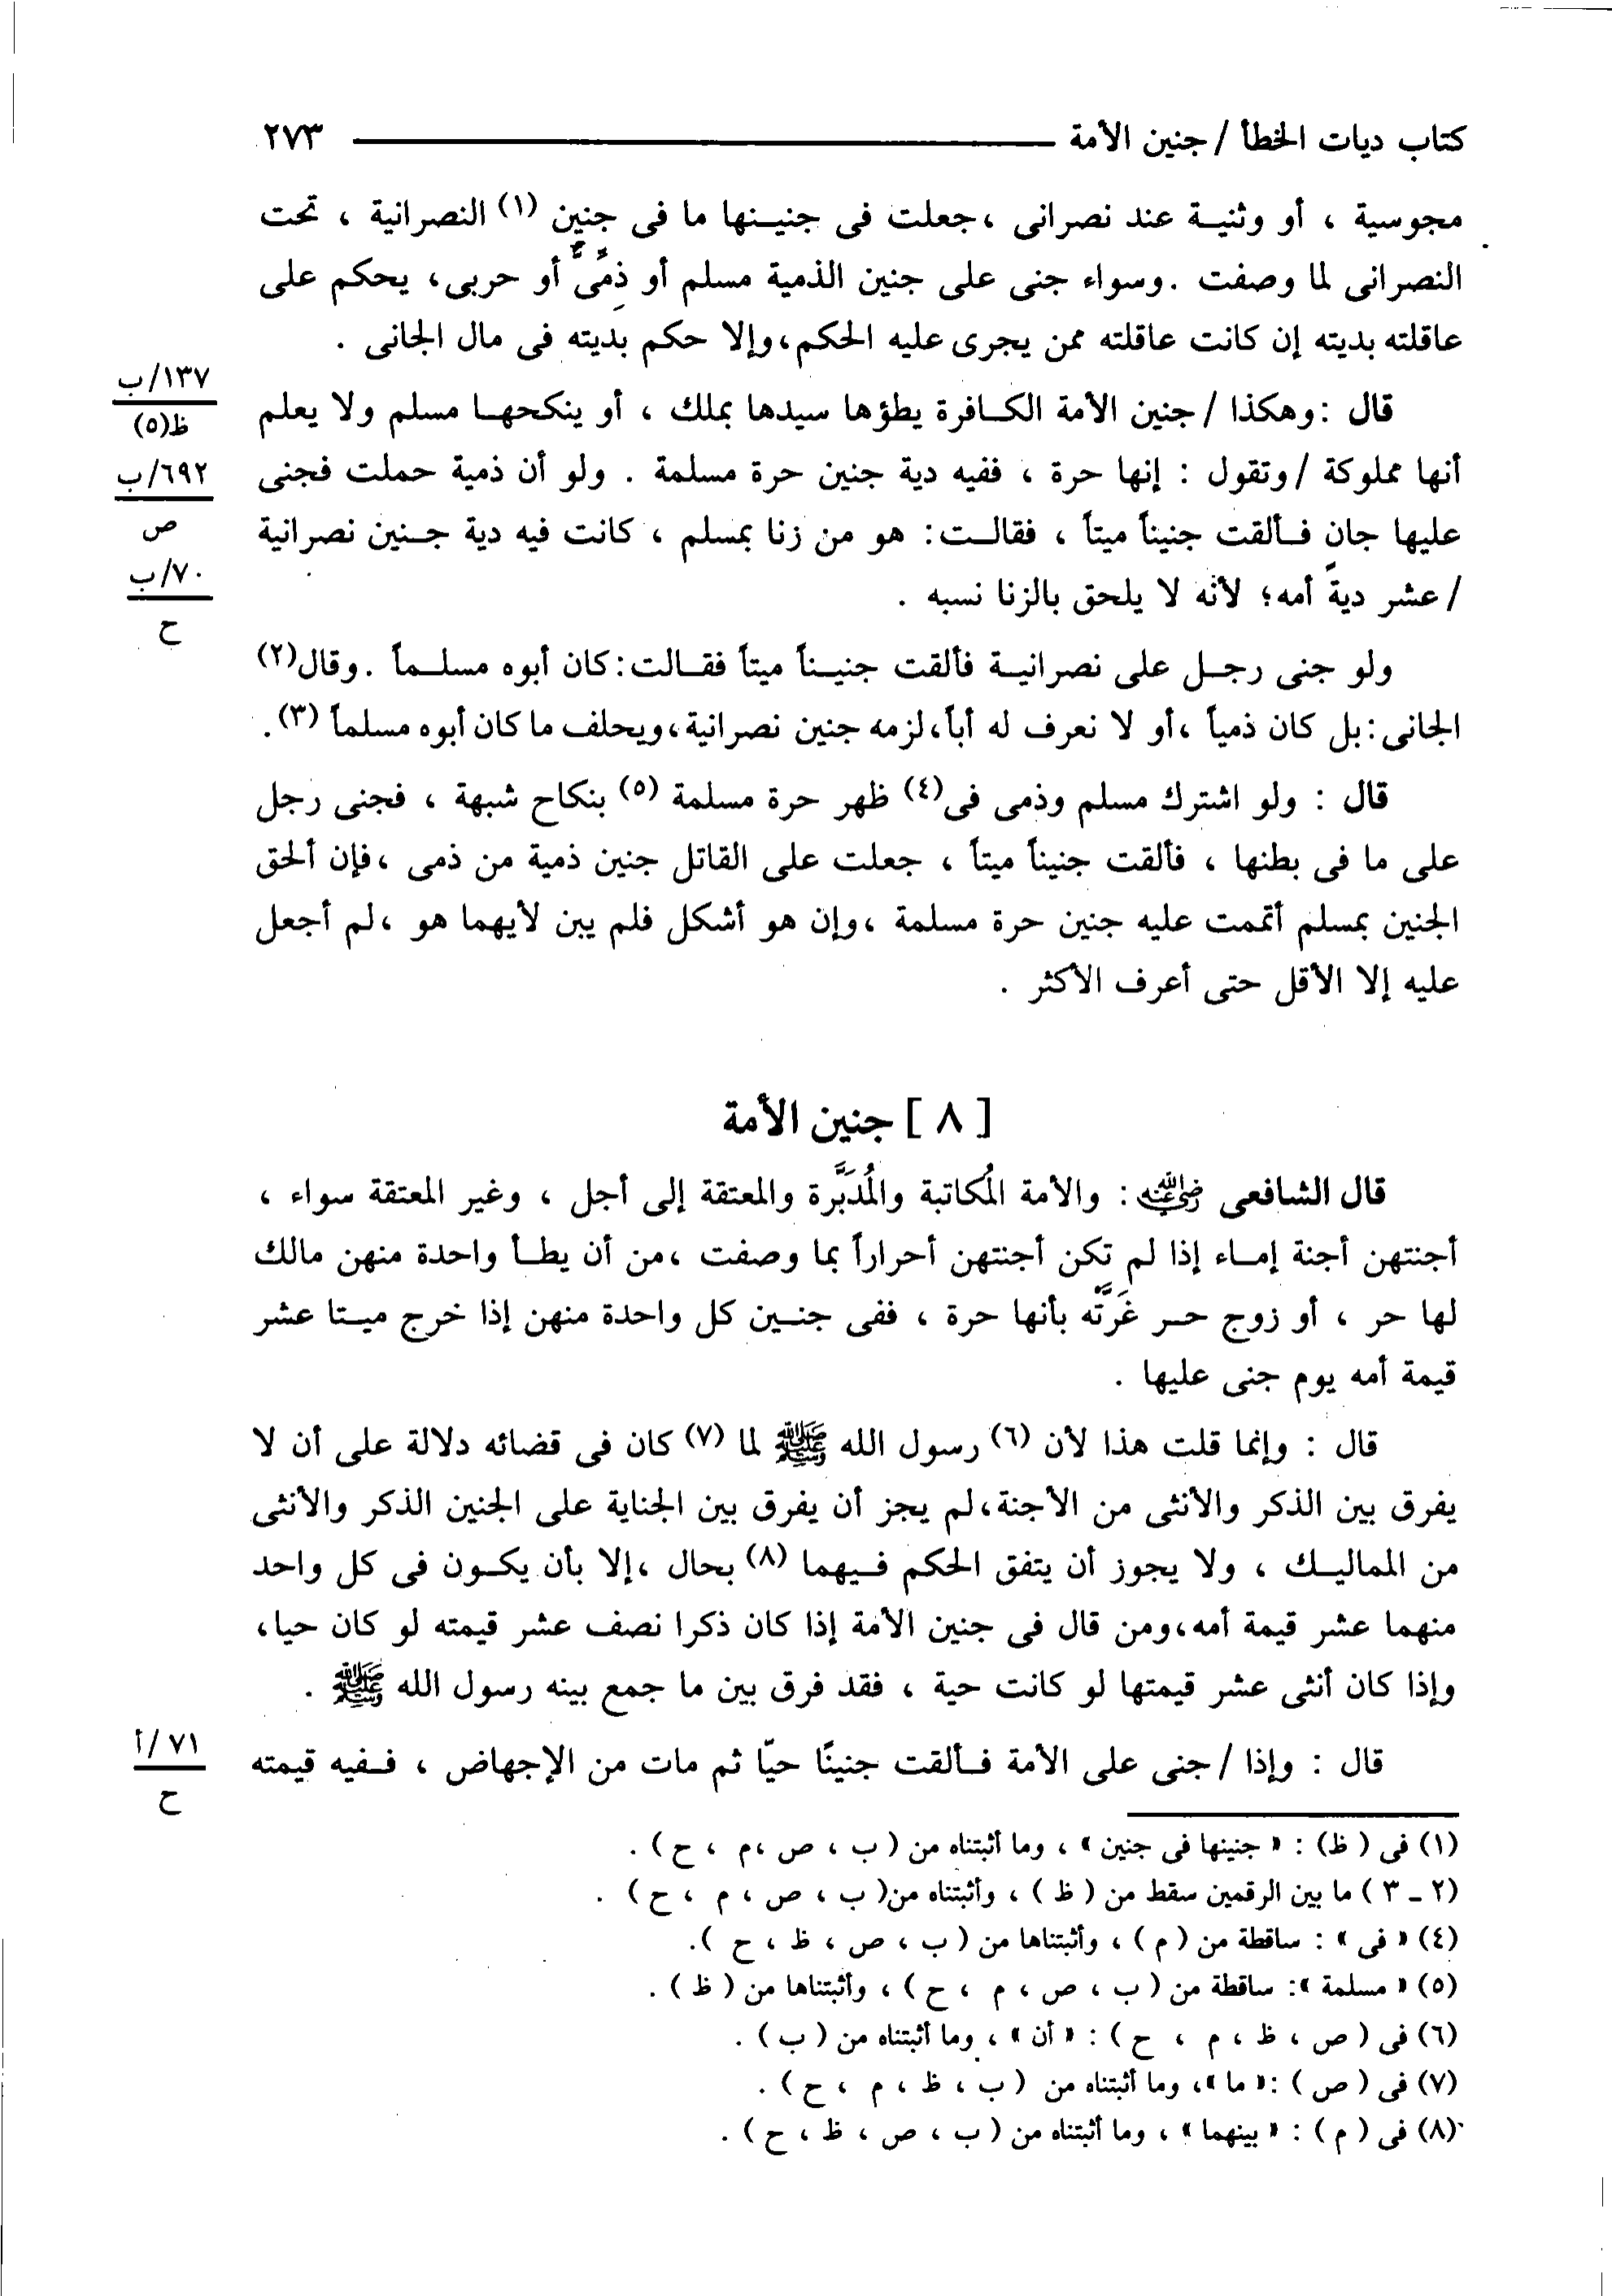 كتاب ديات الخطأ / جنين الأمة ٢٧٣
مجوسية ، أو وثنيـة عند نصرانى ،جعلت فى جنيـنها ما فى جنين (١) النصرانية ، تحت
النصرانى لما وصفت .وسواء جنى على جنين الذمية مسلم أو ذِمِّىٌّ أو حربى، يحكم على
عاقلته بديته إن كانت عاقلته ممن يجرى عليه الحكم،وإلا حكم بديته فى مال الجانى .
١٣٧/ب
ظ(٥)
قال :وهكذا /جنين الأمة الكـافرة يطؤها سيدها بملك ، أو ينكحهـا مسلم ولا يعلم
٦٩٢/ب
ص
أنها مملوكة /وتقول : إنها حرة ، ففيه دية جنين حرة مسلمة . ولو أن ذمية حملت فجنى
عليها جانٍ فـألقت جنيناً ميتاً ، فقالـت: هو من زنا بمسلم ، كانت فيه دية جـنين نصرانية
٧٠/ب
ح
/عشر ديةِ أمه؛ لأنه لا يلحق بالزنا نسبه .
ولو جنى رجـل على نصرانيـة فألقت جنيـناً ميتاً فقـالت:كان أبوه مسلـماً .وقال(٢)
الجانى:بل كان ذمياً ،أو لا نعرف له أباً،لزمه جنين نصرانية،ويحلف ما كان أبوه مسلماً (٣).
قال : ولو اشترك مسلم وذمى فى(٤) ظهر حرة مسلمة (٥) بنكاح شبهة ، فجنى رجل
على ما فى بطنها ، فألقت جنيناً ميتاً ، جعلت على القاتل جنين ذمية من ذمى ،فإن ألحق
الجنين بمسلم أتممت عليه جنين حرة مسلمة ،وإن هو أشكل فلم يبن لأيهما هو ،لم أجعل
عليه إلا الأقل حتى أعرف الأكثر .
[ ٨ ] جنين الأمة
قال الشافعى رضي الله عنه : والأمة المُكاتبة والمُدَبَّرة والمعتقة إلى أجل ، وغير المعتقة سواء ،
أجنتهن أجنة إمـاء إذا لم تكن أجنتهن أحراراً بما وصفت ،من أن يطـأ واحدة منهن مالك
لها حر ، أو زوج حـر غَرَّته بأنها حرة ، ففى جنـين كل واحدة منهن إذا خرج ميـتا عشر
قيمة أمه يوم جنى عليها .
قال : وإنما قلت هذا لأن (٦) رسول الله ﷺ لما (٧) كان فى قضائه دلالة على أن لا
يفرق بين الذكر والأنثى من الأجنة،لم يجز أن يفرق بين الجناية على الجنين الذكر والأنثى
من المماليـك ، ولا يجوز أن يتفق الحكم فـيهما (٨) بحال ،إلا بأن يكـون فى كل واحد
منهما عشر قيمة أمه،ومن قال فى جنين الأمة إذا كان ذكرا نصف عشر قيمته لو كان حيا،
وإذا كان أنثى عشر قيمتها لو كانت حية ، فقد فرق بين ما جمع بينه رسول الله ﷺ .
٧١/أ
ح
قال : وإذا /جنى على الأمة فـألقت جنينًا حيّا ثم مات من الإجهاض ، فـفيه قيمته
(١) فى ( ظ) : « جنينها فى جنين » ، وما أثبتناه من ( ب ، ص ،م ، ح ) .
(٢ ـ ٣ ) ما بين الرقمين سقط من ( ظ ) ، وأثبتناه من( ب ، ص ، م ، ح ) .
(٤) « فى » : ساقطة من ( م ) ، وأثبتناها من ( ب ، ص ، ظ ، ح ).
(٥) « مسلمة »: ساقطة من ( ب ، ص ، م ، ح ) ، وأثبتناها من ( ظ ) .
(٦) فى ( ص ، ظ ، م ، ح ) : « أن » ، وما أثبتناه من ( ب ) .
(٧) فى ( ص ) :« ما »، وما أثبتناه من ( ب ، ظ ، م ، ح ) .
(٨) فى ( م ) : « بينهما » ، وما أثبتناه من ( ب ، ص ، ظ ، ح ) .